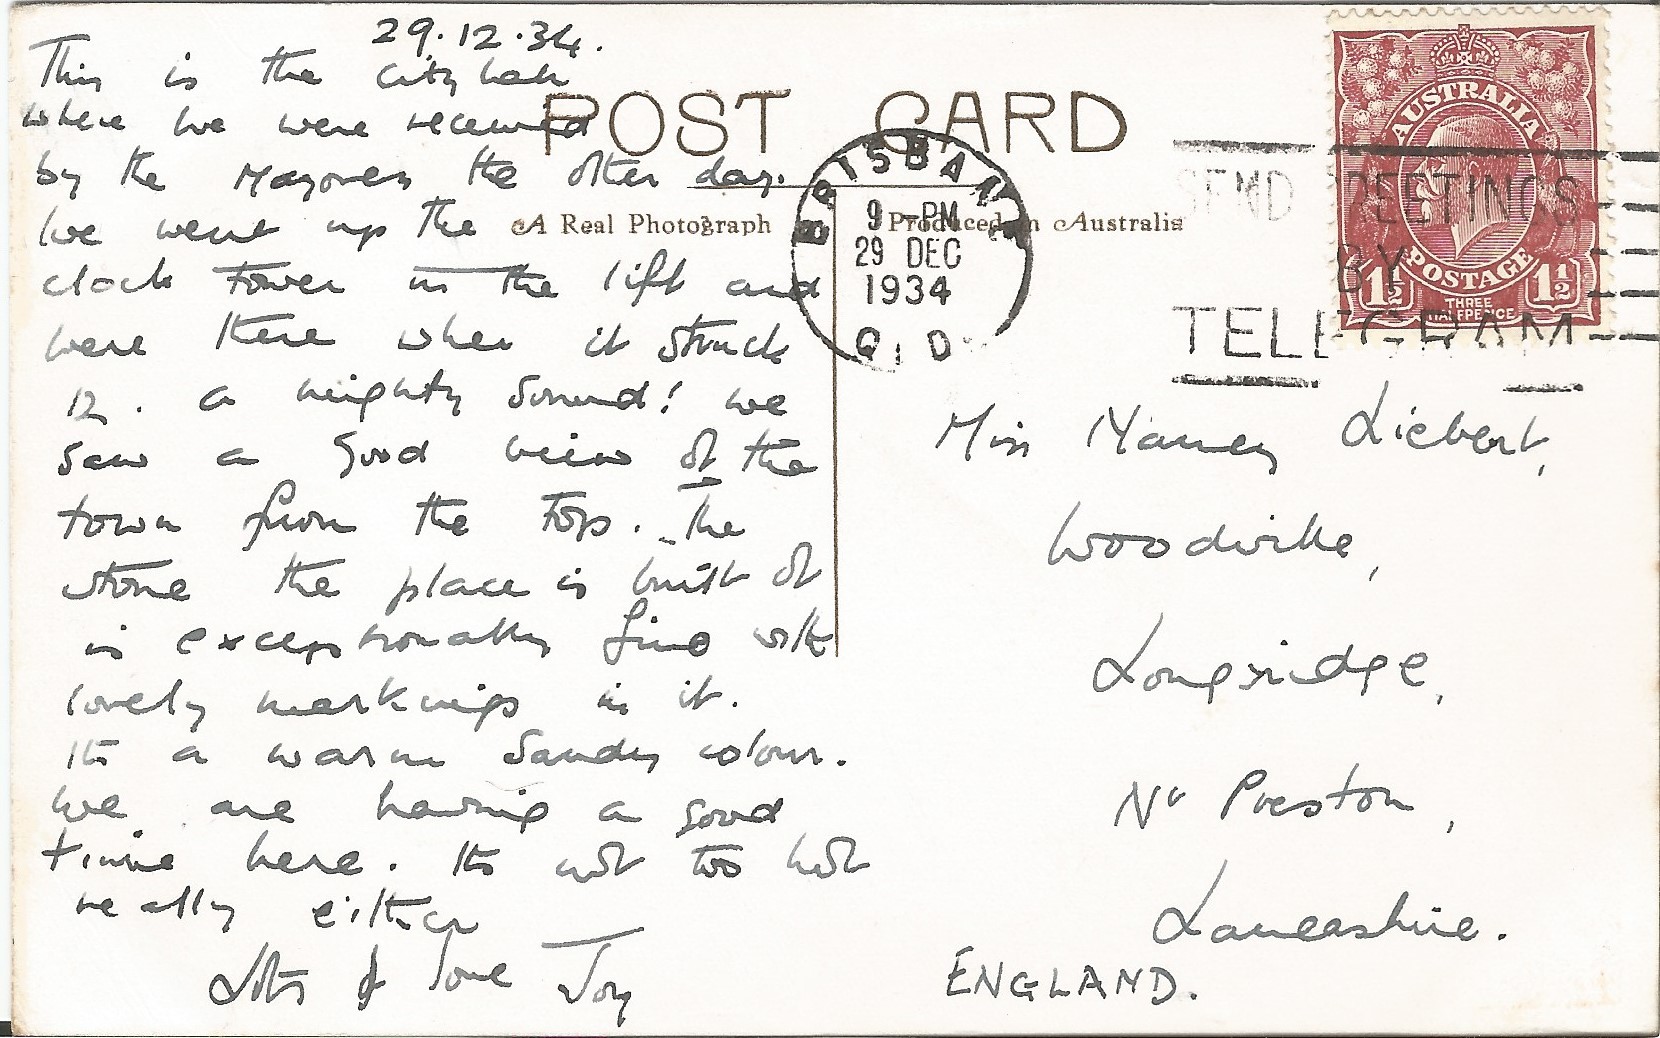 29.12.34.
This is the City hall
where we were received
by the Mayoress the other day.
We went up the
clock tower in the lift and
were there when it struck
12. A mighty sound! We
saw a good view of the
town from the top. The
stone the place is built of
is exceptionally fine with
lovely markings in it.
Its a warm Sandy colour.
We are having a good
time here. Its not too hot
really either
Lots of love Joy
POST CARD
A Real Photograph Produced in Australia
BRISBANE
9 - PM
29 DEC
1934
QLD
SEND GREETINGS
BY
TELEGRAM
AUSTRALIA
POSTAGE
1½ THREE HALFPENCE 1½
Miss Nancy Liebert,
Woodville,
Longridge,
Nr Preston,
Lancashire.
ENGLAND.